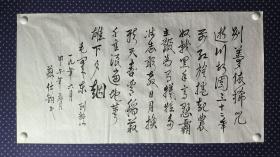 别夢依稀咒
逝川故園三十二年
前红旗捲起農
奴戟黑手高懸霸
主鞭为有犧牲多
壮志敢教日月换
新天喜看稻菽
千重浪遍地英
雄下夕烟
毛泽东到韶山
甲午年